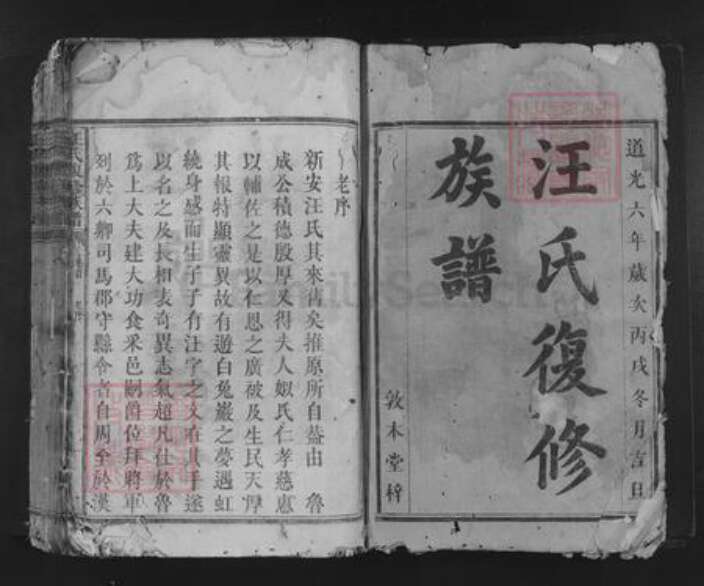 道光六年歲次丙戌冬月吉旦
汪氏復修
族譜
敦本堂梓
老序
新安汪氏其來尚矣推原所自蓋由 魯
成公積德殷厚又得夫人姒氏仁孝慈惠
以輔佐之是以仁恩之廣被及生民天厚
其報特顯靈異故有遊白兔巖之夢遇虹
繞身感而生子子有汪字之文在其手遂
以名之及長相表奇異志氣超凡仕於魯
爲上大夫建大功食采邑嗣爵位拜將軍
列於六卿司馬郡守縣令者自周至於漢
FamilySearch